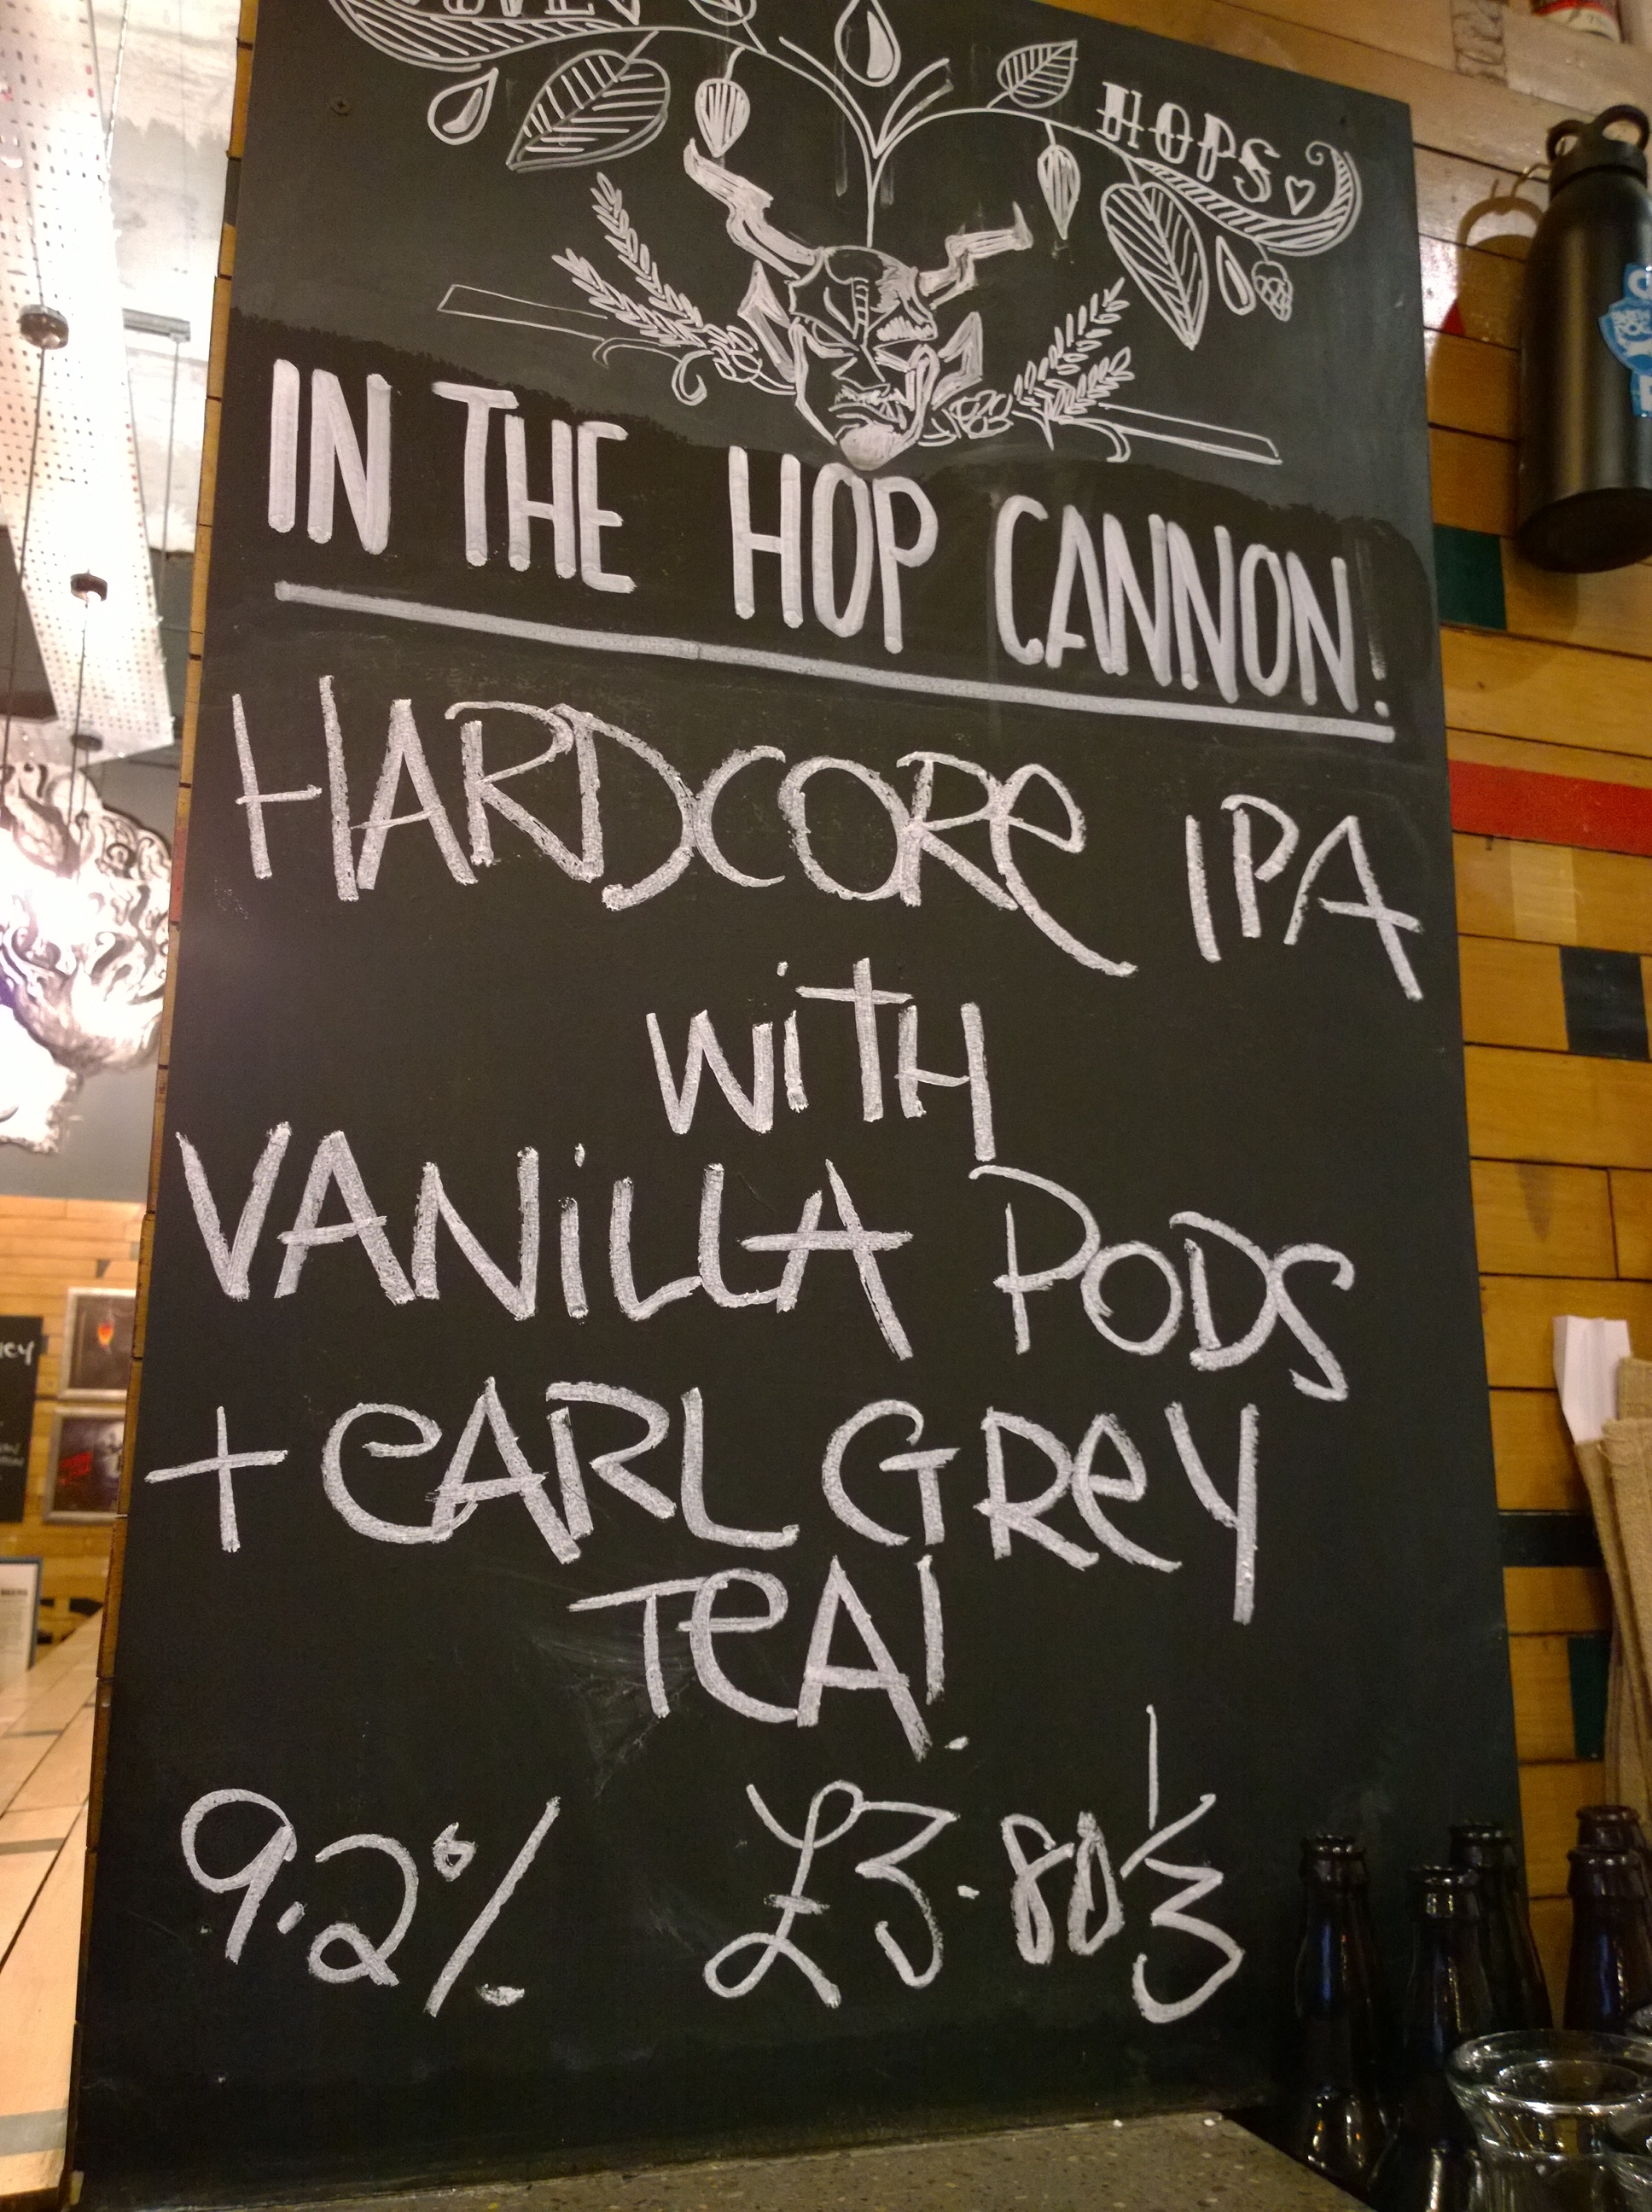 HOPS
IN THE HOP CANNON!
HARDCORE IPA
WITH
VANILLA PODS
+ EARL GREY
TEA!
9.2% £3.80 1/3